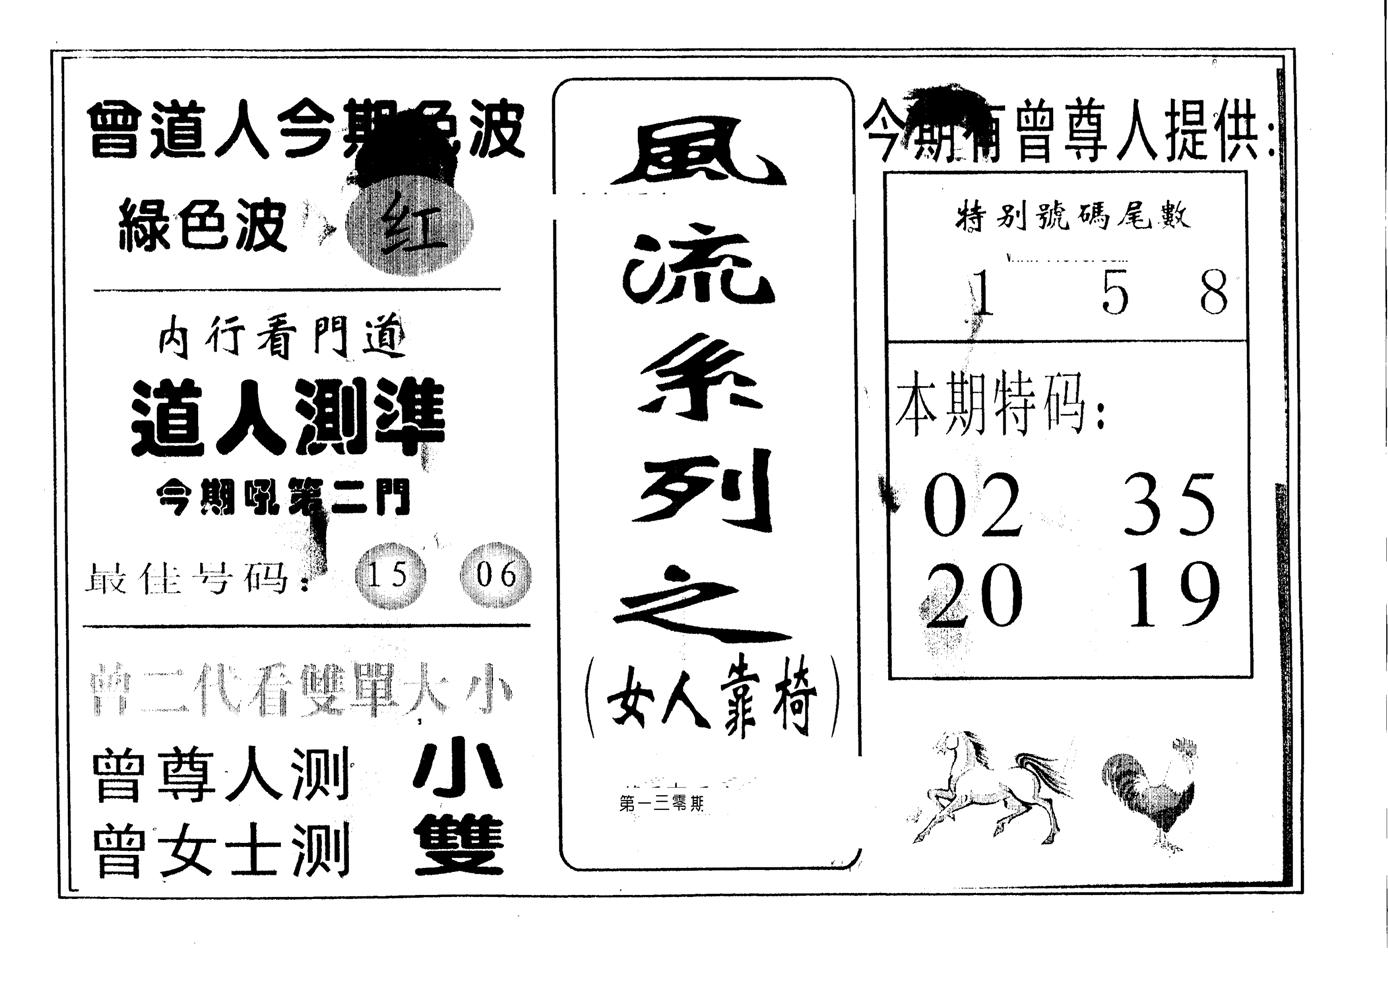 曾道人今期色波
綠色波 红
内行看門道
道人測準
今期吼第二門
最佳号码: 15 06
曾二代看雙單大小
曾尊人测 小
曾女士测 雙
風流系列之
(女人靠椅)
第一三零期
今期有曾尊人提供:
特别號碼尾數
1 5 8
本期特码:
02 35
20 19